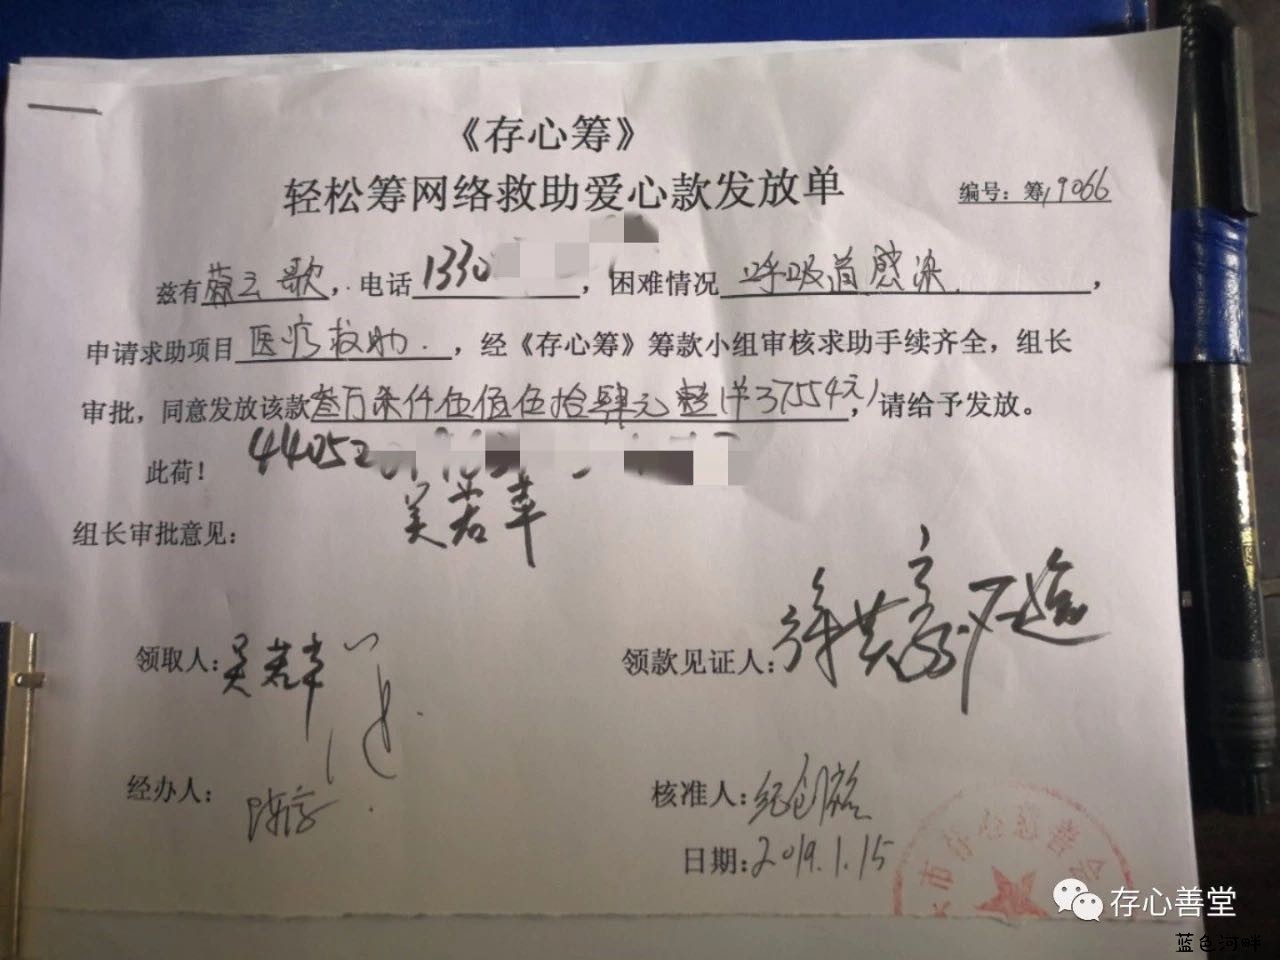 《存心筹》
轻松筹网络救助爱心款发放单
编号：筹19066
兹有蔡云歌，电话1330，困难情况呼吸道感染，
申请求助项目医疗救助．，经《存心筹》筹款小组审核求助手续齐全，组长
审批，同意发放该款叁万柒仟伍佰伍拾肆元整(¥37554元)，请给予发放。
44052
此荷！
组长审批意见：
领取人：
领款见证人：
经办人：
核准人：
日期：2019.1.15
市存心慈善会
存心善堂
蓝色河畔